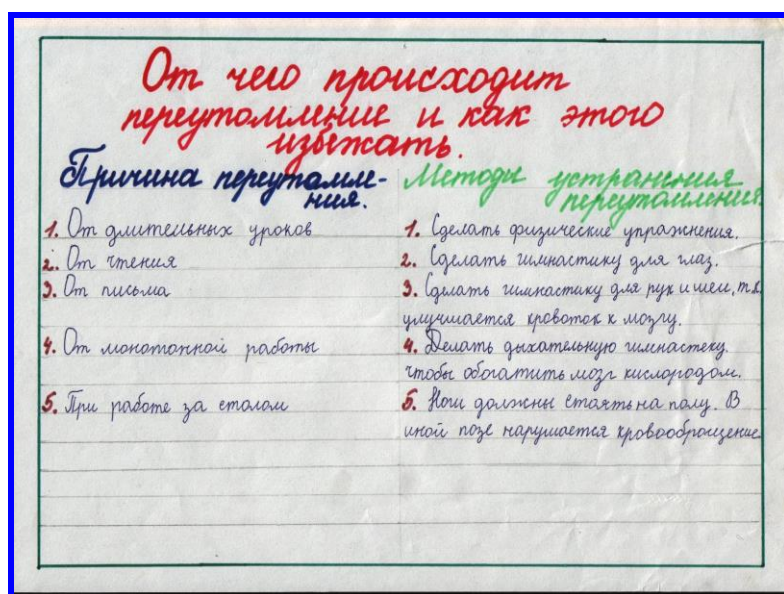 От чего происходит
переутомление и как этого
избежать.
Причина переутомле-
ния.
1. От длительных уроков
2. От чтения
3. От письма
4. От монотонной работы
5. При работе за столом
Методы устранения
переутомления.
1. Сделать физические упражнения.
2. Сделать гимнастику для глаз.
3. Сделать гимнастику для рук и шеи, т.к.
улучшается кровоток к мозгу.
4. Делать дыхательную гимнастеку.
чтобы обогатить мозг кислородом.
5. Ноги должны стоять на полу. В
иной позе нарушается кровообращение.